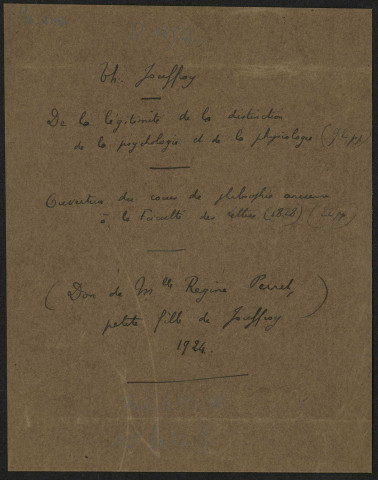 Th. Jouffroy
De la légitimité de la distinction
de la psychologie et de la physiologie
Ouverture du cours de philosophie ancienne
à la Faculté des lettres (1828)
(Don de Mlle Regine Perret
petite fille de Jouffroy)
1924.